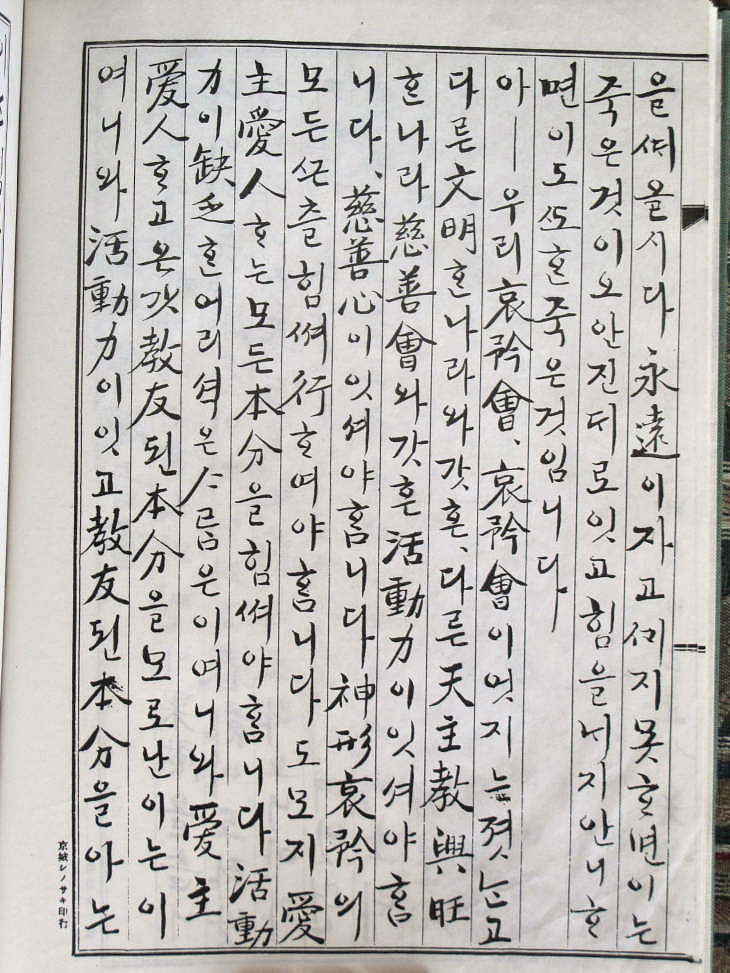 을ᄯᅢ올시다永遠이자고ᄭᅢ지못ᄒᆞ면이는
죽은것이오안진ᄃᆡ로잇고힘을ᄂᆡ지안니ᄒᆞ
면이도ᄯᅩᄒᆞᆫ죽은것임니다
아—우리哀矜會、哀矜會이엇지는졋는고
다른文明ᄒᆞᆫ나라와갓ᄒᆞᆫ、다른天主敎興旺
ᄒᆞᆫ나라慈善會와갓ᄒᆞᆫ活動力이잇셔야ᄒᆞᆷ
니다、慈善心이잇셔야ᄒᆞᆷ니다神形哀矜의
모든 힘ᄡᅥ行ᄒᆞ여야ᄒᆞᆷ니다도모지愛
主愛人ᄒᆞ는모든本分을힘ᄡᅥ야ᄒᆞᆷ니다活動
力이缺乏ᄒᆞᆫ어리셕은ᄉᆞᄅᆞᆷ은이여니와愛主
愛人ᄒᆞ고온갓敎友된本分을모로난이는이
여니와活動力이잇고敎友된本分을아는
京城シノサキ印行